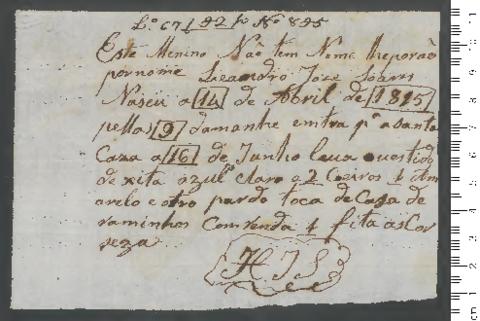 Lº 67 1 92 pº Nº 895
Este Menino Naõ tem Nome lheporaõ
pornome Leandro Joze Soares
Naseu a 14 de Abril de 1815
pellas 9 damanhe emtra pª a Santa
Caza a 16 de Junho leva ovestido
de xita azul Claro e 2 Coeiros 1 am
arelo e otro pardo toca de Caça de
raminhos Comrenda 1 fita as Cor
reza
HJS